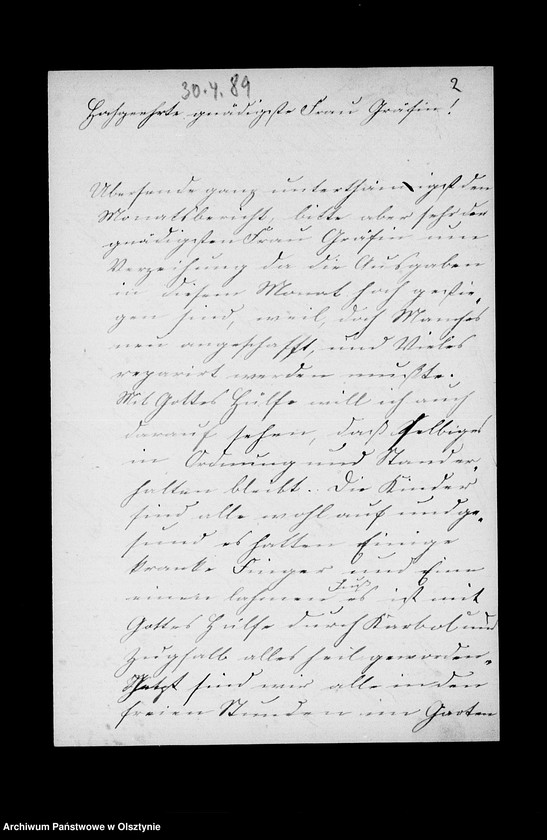 30.4.89
2
Hochgeehrte gnädigste Frau Gräfin!
Übersende ganz unterthänigst den
Monatsbericht, bitte aber sehr den
gnädigsten Frau Gräfin um
Verzeihung da die Ausgaben
in diesem Monat hoch gestie„
gen sind, weil, doch Manches
neu angeschafft, und Vieles
reparirt werden mußte.
Mit Gottes Hülfe will ich auch
darauf sehen, daß selbiges
in Ordnung und Stander„
halten bleibt. Die Kinder
sind alle wohl auf und ge„
sund es hatten Einige
kranke Finger und Eine
einen lahmen Fuß es ist mit
Gottes Hülfe durch Karbol und
Zugsalb alles heil geworden„
Jetzt sind wir alle in den
freien Stunden im Garten
Archiwum Państwowe w Olsztynie